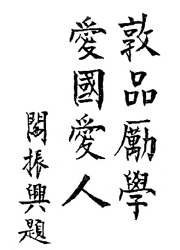 敦品勵學
愛國愛人
閻振興題